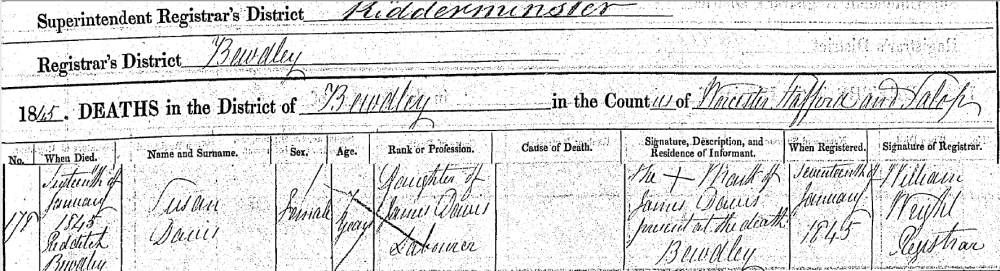 Superintendent Registrar's District Kidderminster
Registrar's District Bewdley
1845. DEATHS in the District of Bewdley in the Counties of Worcester Stafford and Salop
No. When Died. Name and Surname. Sex. Age. Rank or Profession. Cause of Death. Signature, Description, and Residence of Informant. When Registered. Signature of Registrar.
178
Sixteenth of
January
1845
Redditch
Bewdley
Susan
Davis
Female
7
years
Daughter of
James Davis
Labourer
The + Mark of
James Davis
present at the death
Bewdley
Seventeenth of
January
1845
William
Wright
Registrar